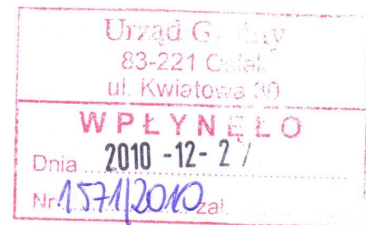 Urząd G
83-221
ul. Kwiatowa 30
WPŁYNĘŁO
Dnia 2010 -12- 2
Nr 1571/2010 zał.